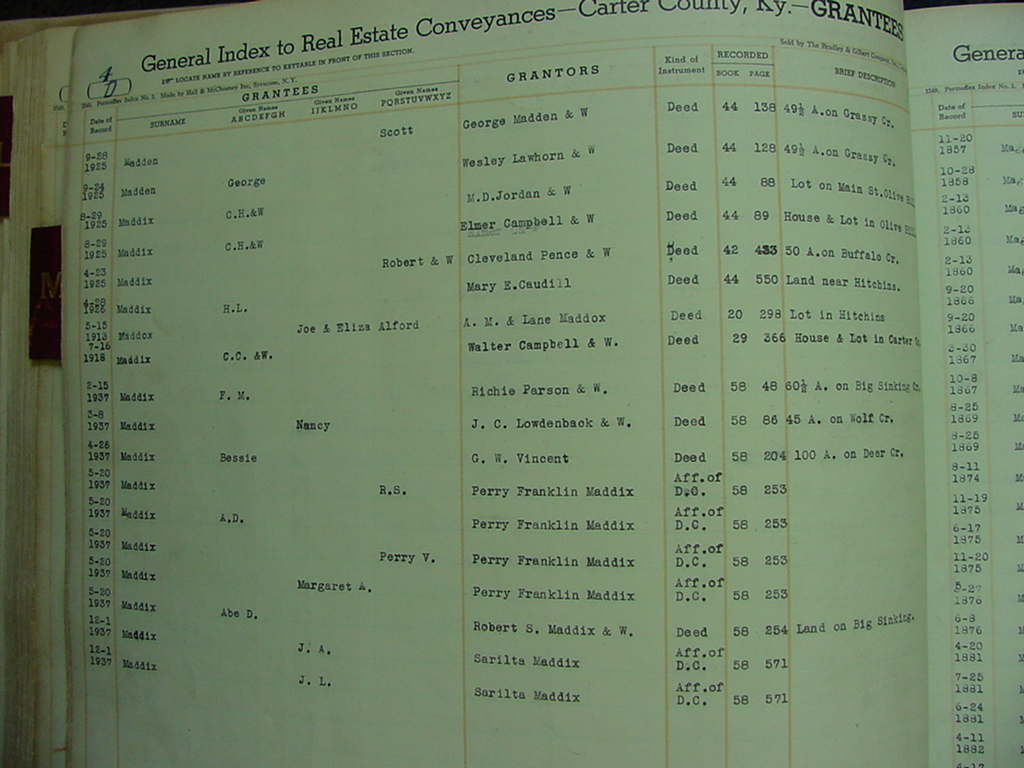 General Index to Real Estate Conveyances—Carter County, Ky.—GRANTEES
4
D
LOCATE NAME BY REFERENCE TO KEYTABLE IN FRONT OF THIS SECTION.
Sold by The Bradley & Gilbert Company,
Permaflex Index No. 2. Made by Hall & McChesney Inc, Syracuse, N. Y.
GRANTEES GRANTORS Kind of Instrument RECORDED BRIEF DESCRIPTION
Date of Record SURNAME Given Names ABCDEFGH Given Names IJKLMNO Given Names PQRSTUVWXYZ BOOK PAGE
9-28 1925 Madden Scott George Madden & W Deed 44 138 49½ A.on Grassy Cr.
9-24 1925 Madden George Wesley Lawhorn & W Deed 44 128 49½ A.on Grassy Cr.
8-29 1925 Maddix C.H.&W M.D.Jordan & W Deed 44 88 Lot on Main St.Olive Hill
8-29 1925 Maddix C.H.&W Elmer Campbell & W Deed 44 89 House & Lot in Olive Hill
4-23 1925 Maddix Robert & W Cleveland Pence & W Deed 42 433 50 A.on Buffalo Cr.
4-28 1926 Maddix H.L. Mary E.Caudill Deed 44 550 Land near Hitchins.
5-15 1913 Maddox Joe & Eliza Alford A. M. & Lane Maddox Deed 20 298 Lot in Hitchins
7-16 1918 Maddix C.C. &W. Walter Campbell & W. Deed 29 366 House & Lot in Carter
2-15 1937 Maddix F. M. Richie Parson & W. Deed 58 48 60½ A. on Big Sinking Cr.
3-8 1937 Maddix Nancy J. C. Lowdenback & W. Deed 58 86 45 A. on Wolf Cr.
4-26 1937 Maddix Bessie G. W. Vincent Deed 58 204 100 A. on Deer Cr.
5-20 1937 Maddix R.S. Perry Franklin Maddix Aff.of D.C. 58 253
5-20 1937 Maddix A.D. Perry Franklin Maddix Aff.of D.C. 58 253
5-20 1937 Maddix Perry V. Perry Franklin Maddix Aff.of D.C. 58 253
5-20 1937 Maddix Margaret A. Perry Franklin Maddix Aff.of D.C. 58 253
5-20 1937 Maddix Abe D. Robert S. Maddix & W. Deed 58 254 Land on Big Sinking.
12-1 1937 Maddix J. A. Sarilta Maddix Aff.of D.C. 58 571
12-1 1937 Maddix J. L. Sarilta Maddix Aff.of D.C. 58 571
Genera
Date of Record
11-20 1857
10-28 1858
2-13 1860
2-13 1860
2-13 1860
9-20 1866
9-20 1866
3-30 1867
10-8 1867
8-25 1869
8-25 1869
8-11 1874
11-19 1875
6-17 1875
11-20 1875
1876
6-8 1876
4-20 1881
7-25 1881
6-24 1881
4-11 1882